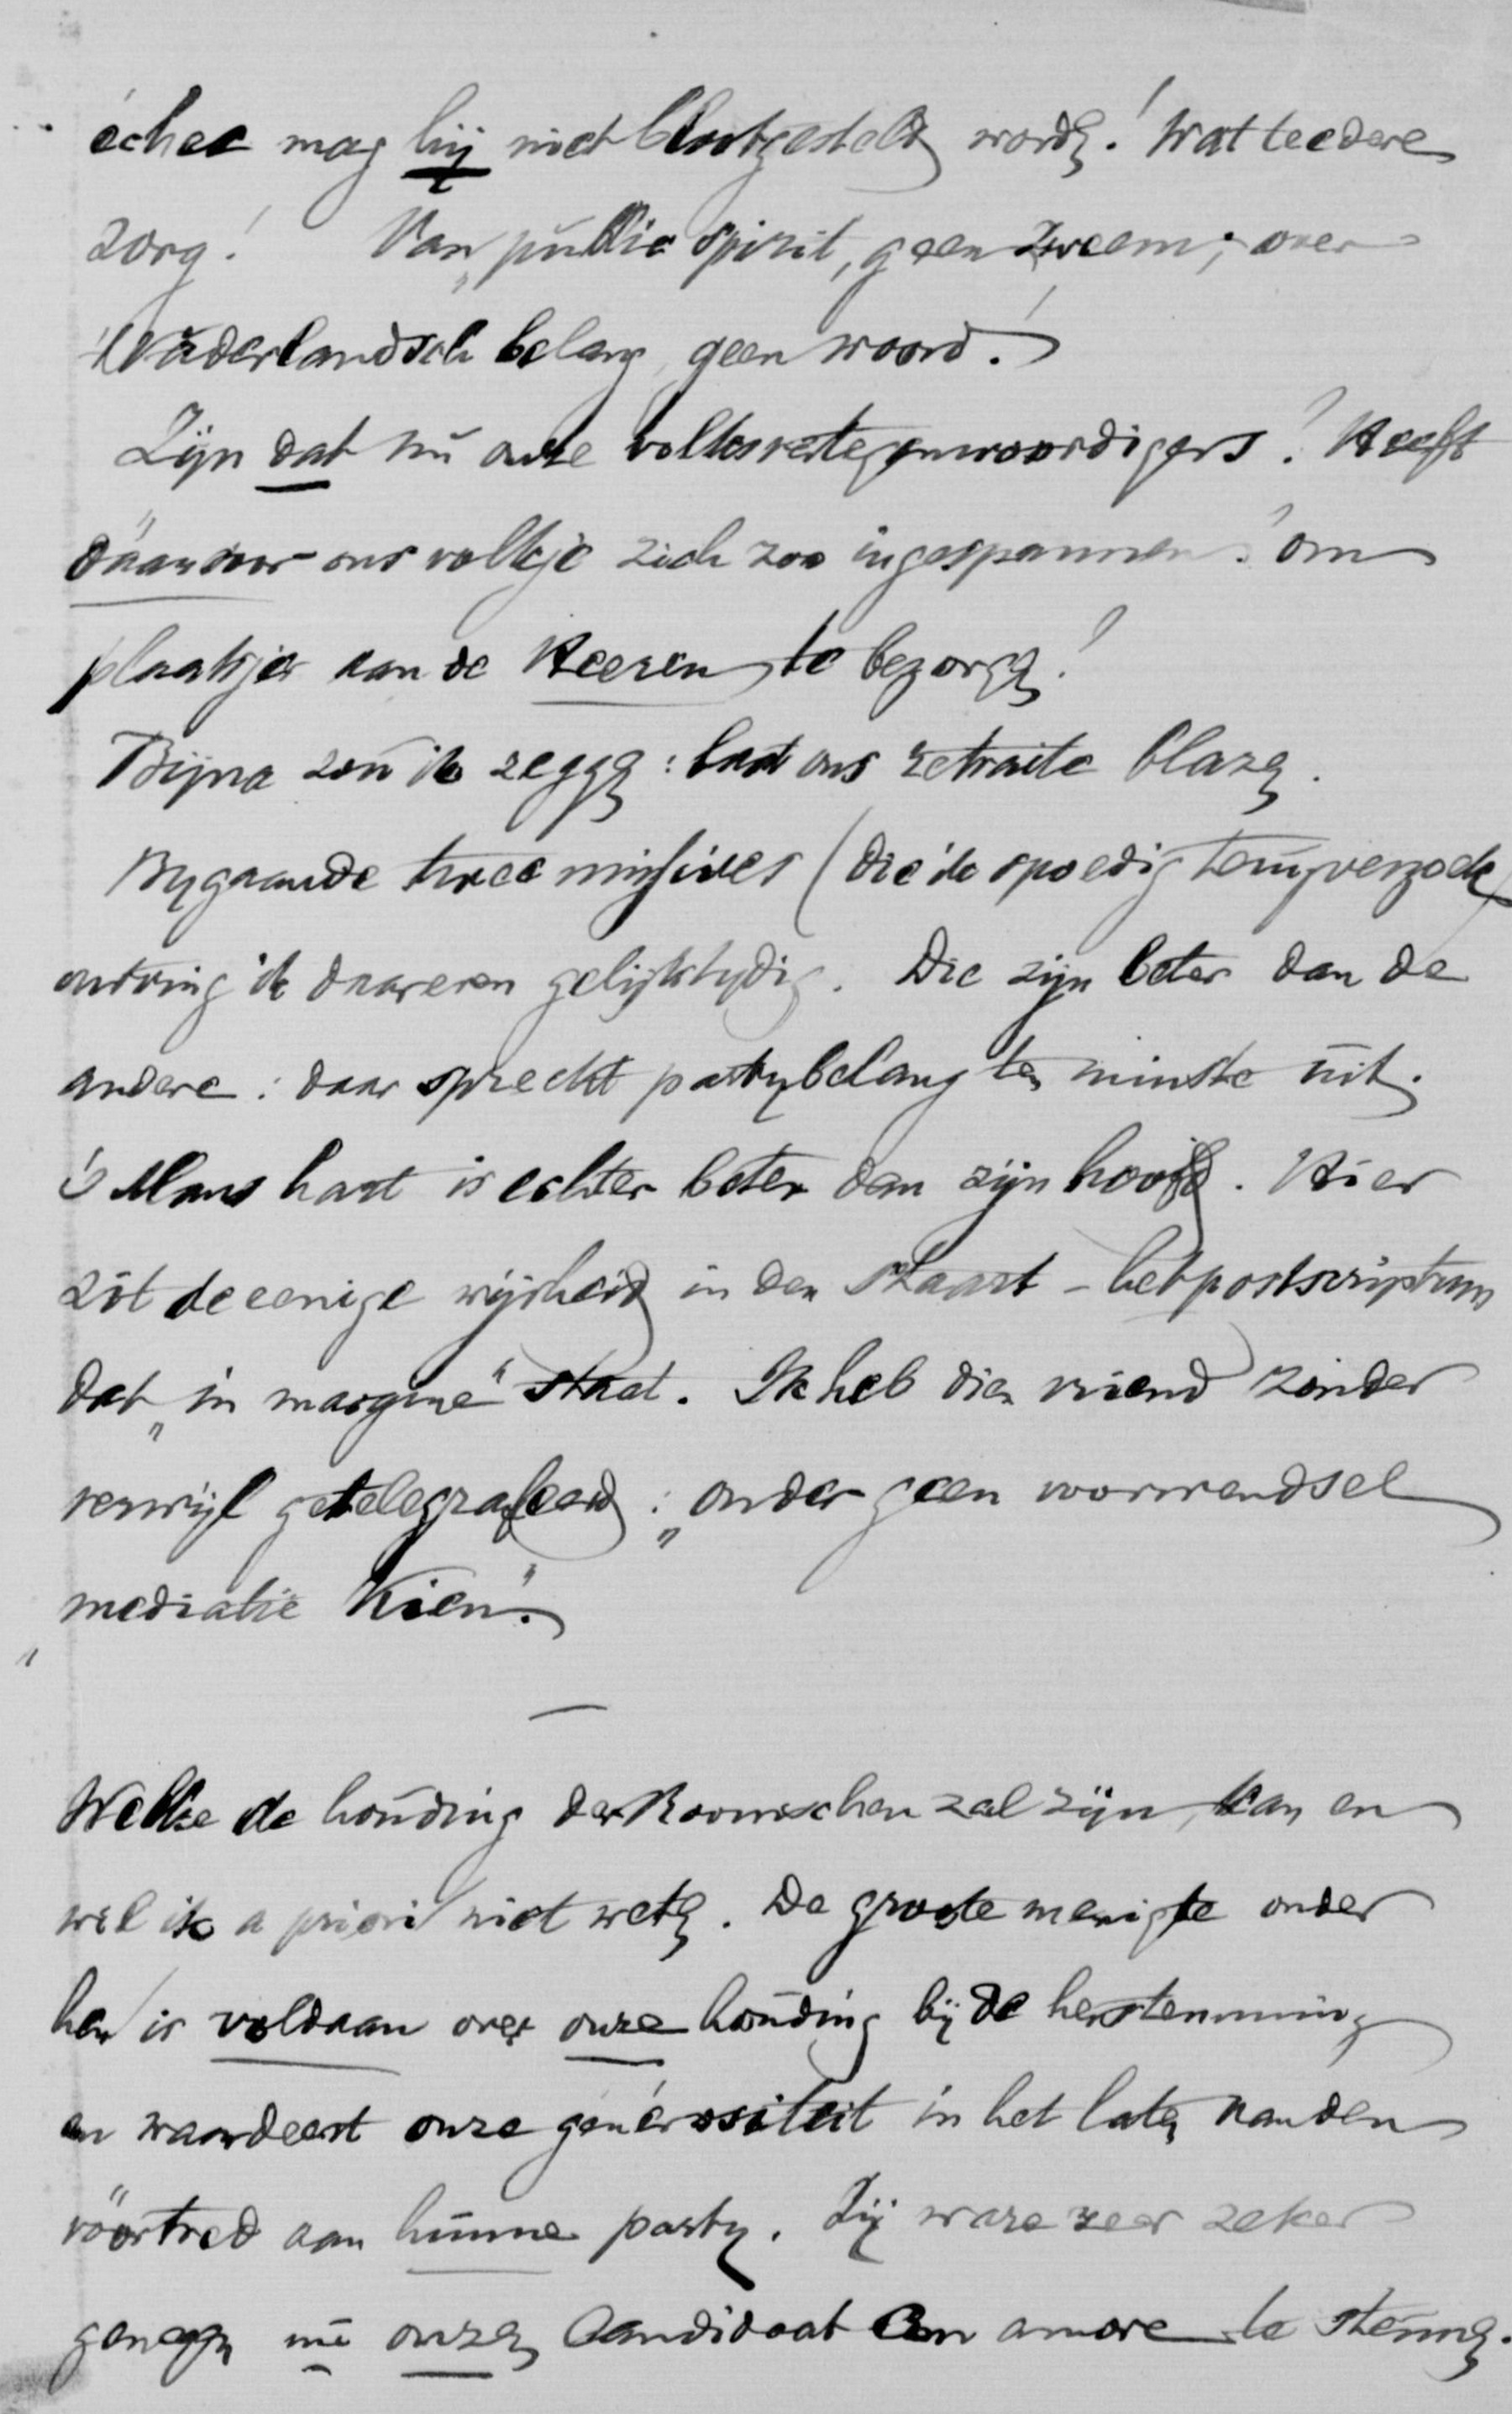 échec mag hij niet blootgesteld worden! Wat teedere
zorg! Van „public spirit, geen zweem; over
't Vaderlandsch belang, geen woord!
Zijn dat nu onze volksvertegenwoordigers? Heeft
dáárvoor ons volkje zich zoo ingespannen? om
plaatsjes aan de Heeren te bezorgen!
Bijna zou ik zeggen: laat ons retraite blazen.
Bygaande twee missives (die ik spoedig terugverzoek)
ontving ik daareven gelijktydig. Die zijn beter dan de
andere: daar spreekt partybelang ten minste uit.
's Mans hart is echter beter dan zijn hoofd. Hier
zit de eenige wijsheid in den staart - het postscriptum
dat „in margine" staat. Ik heb dien vriend zonder
verwijl getelegrafeerd: „onder geen voorwendsel
mediatie Kien".
—
Welke de houding der Roomschen zal zijn, kan en
wil ik a priori niet weten. De groote menigte onder
hen is voldaan over onze houding bij de herstemming
en waardeert onze générositeit in het laten van den
vóórtred aan hunne party. Zij ware zeer zeker
genegen nu onzen Candidaat con amore te steunen.